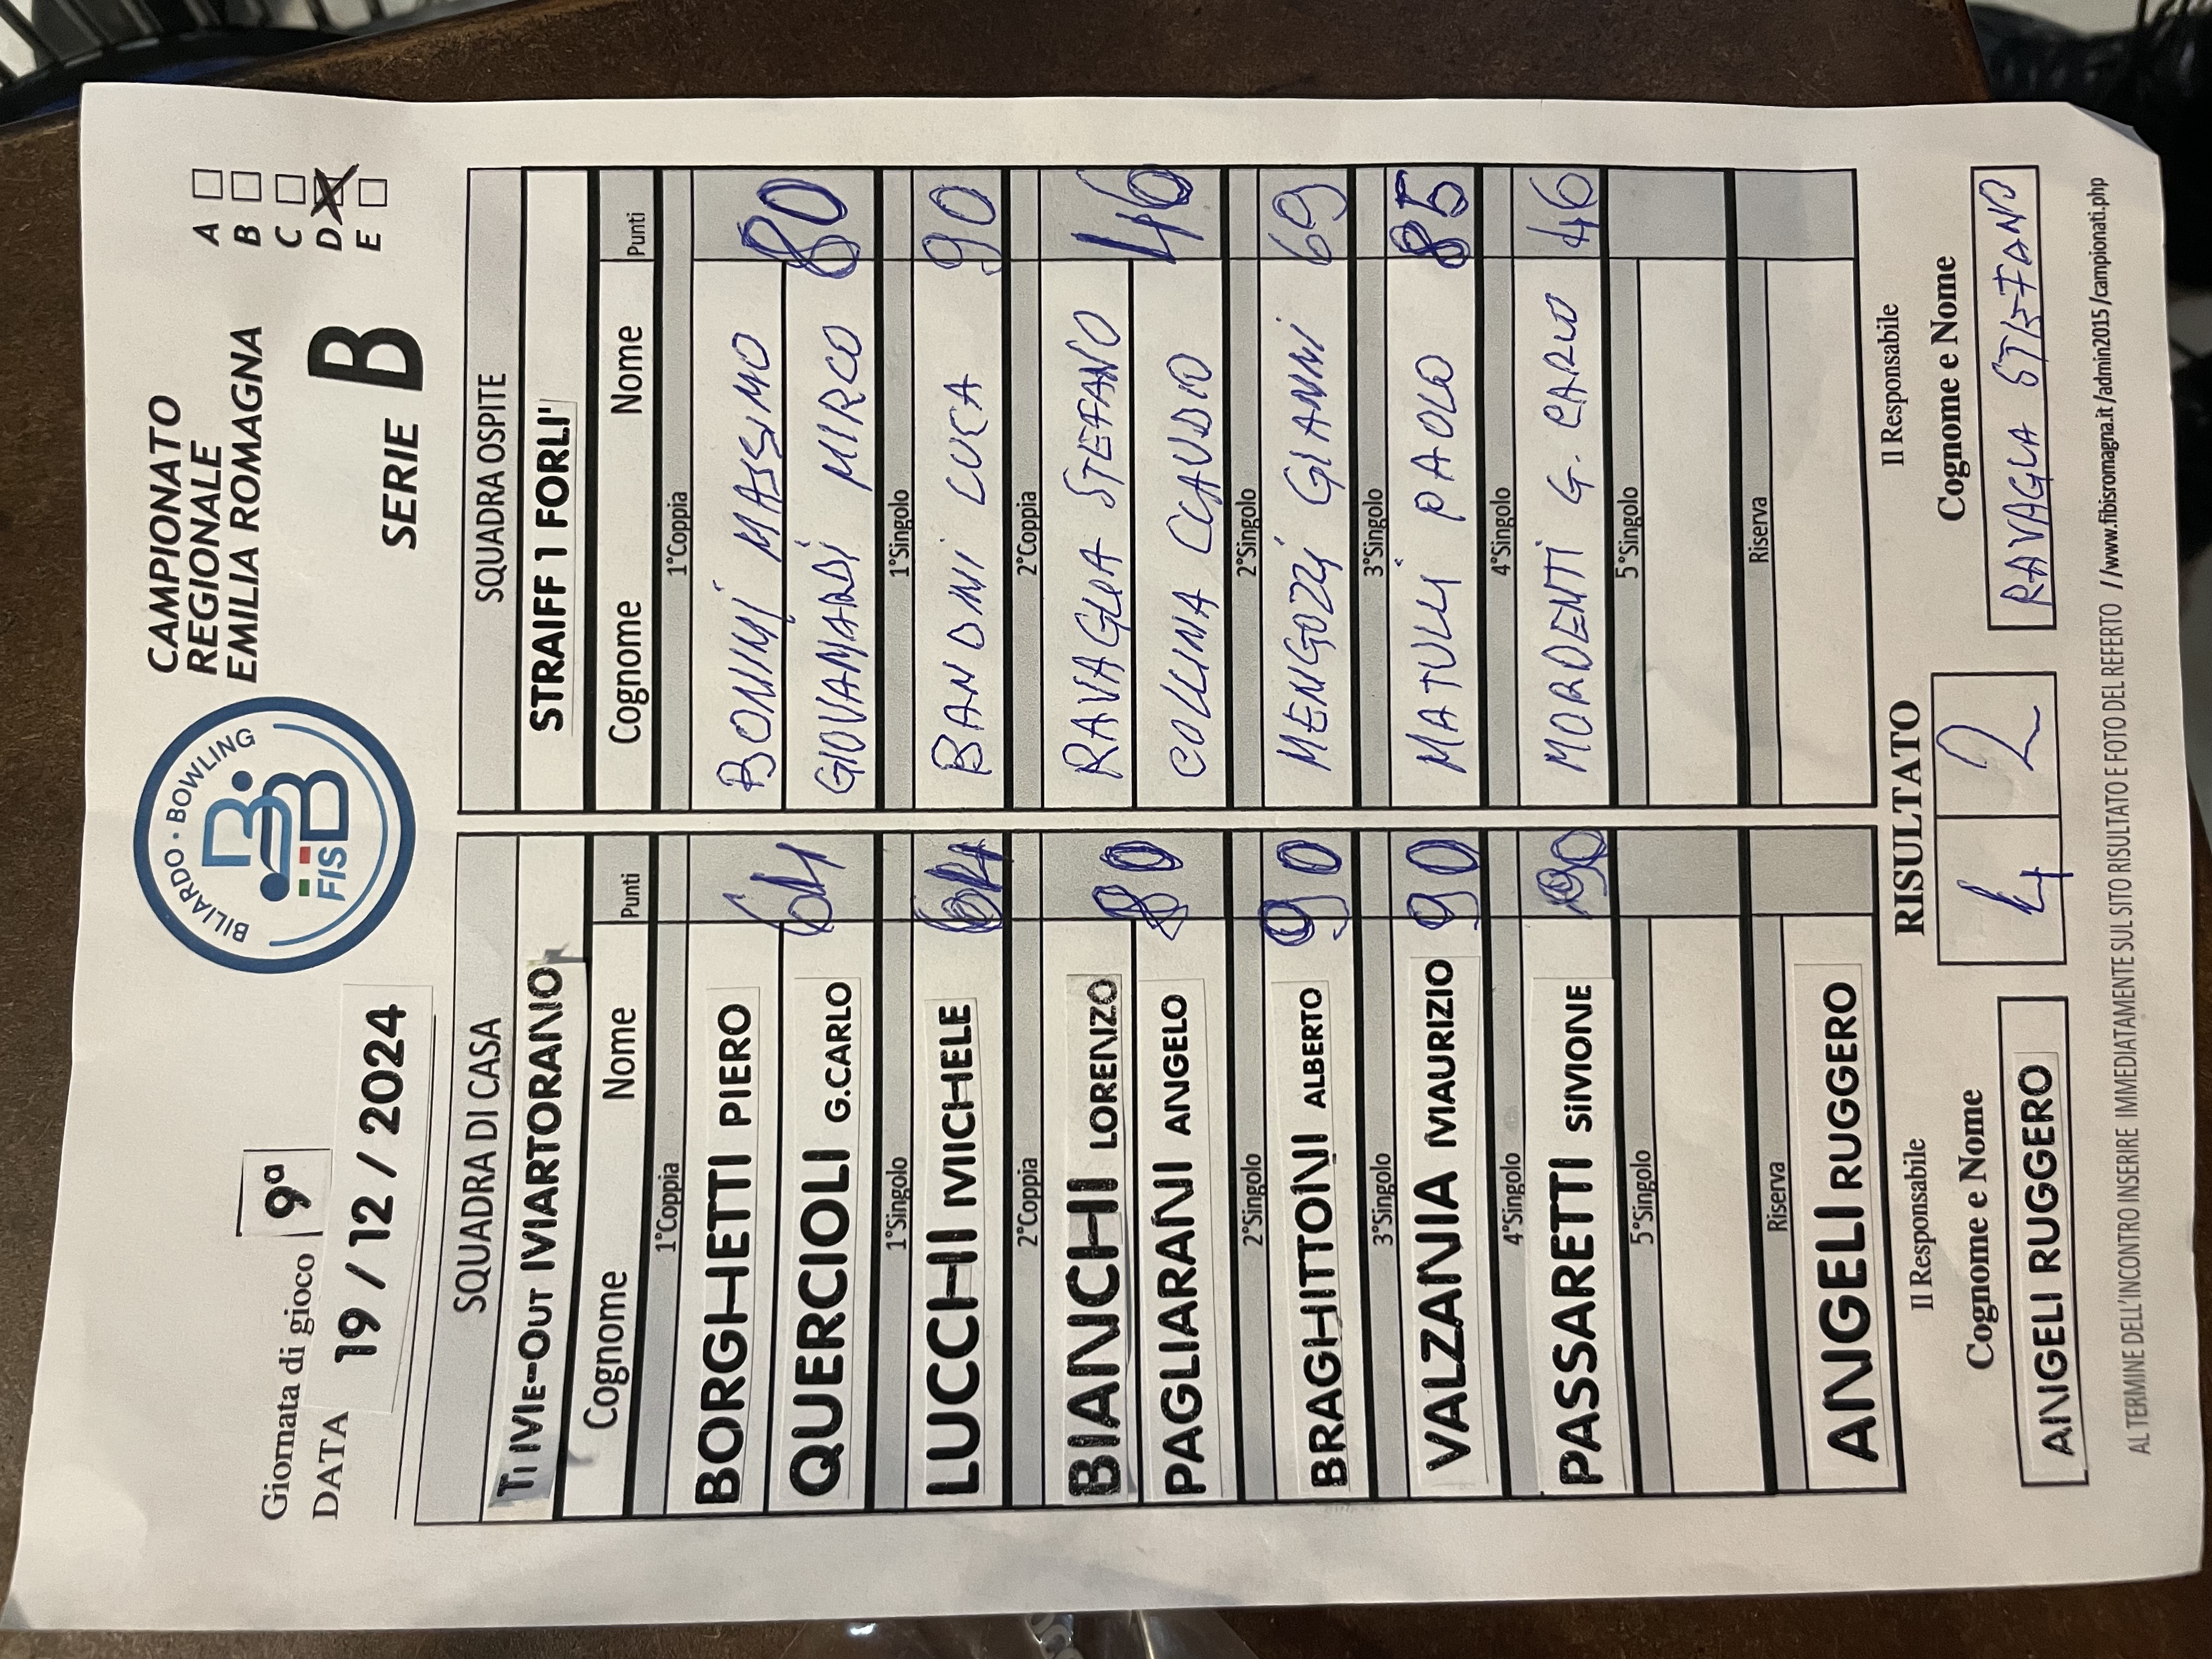 BILIARDO · BOWLING
FISBB
CAMPIONATO
REGIONALE
EMILIA ROMAGNA
SERIE B
A
B
C
D X
E
Giornata di gioco 9ª
DATA 19/12/2024
SQUADRA DI CASA
TiME-OUT MARTORANO
Cognome Nome Punti
1°Coppia
BORGHETTI PIERO
QUERCIOLI G.CARLO 64
1°Singolo
LUCCHI MICHELE 64
2°Coppia
BIANCHI LORENZO
PAGLIARANI ANGELO 80
2°Singolo
BRAGHITTONI ALBERTO 90
3°Singolo
VALZANIA MAURIZIO 90
4°Singolo
PASSARETTI SiMONE 90
5°Singolo
Riserva
ANGELI RUGGERO
SQUADRA OSPITE
STRAIFF 1 FORLI'
Cognome Nome Punti
1°Coppia
BONINI MASSIMO
GIOVANARDI MIRCO 80
1°Singolo
BANDINI LUCA 90
2°Coppia
RAVAGLIA STEFANO
COLLINA CLAUDIO 46
2°Singolo
MENGOZZI GIANNI 69
3°Singolo
MATULLI PAOLO 85
4°Singolo
MORDENTI G. CARLO 46
5°Singolo
Riserva
Il Responsabile
Cognome e Nome
ANGELI RUGGERO
RISULTATO
4 2
Il Responsabile
Cognome e Nome
RAVAGLIA STEFANO
AL TERMINE DELL'INCONTRO INSERIRE IMMEDIATAMENTE SUL SITO RISULTATO E FOTO DEL REFERTO //www.fibisromagna.it/admin2015/campionati.php